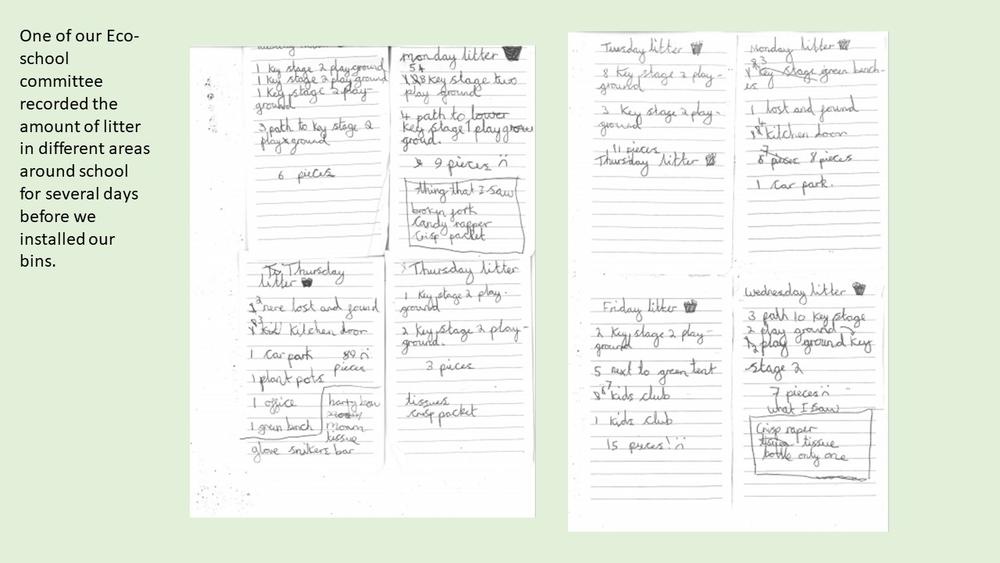 One of our Eco-
school
committee
recorded the
amount of litter
in different areas
around school
for several days
before we
installed our
bins.
1 key stage 2 playground
1 key stage 2 play ground
1 key stage 2 play-
ground
3 path to key stage 2
playground
6 pieces
monday litter
54
key stage two
play ground
4 path to lower
key stage 1 play
ground.
9 pieces
thing that I saw
brokyn fork
Candy rapper
Crisp packet
Thursday
litter
nere lost and found
Kitchen door
1 car park
pieces
1 plant pots
1 office
1 green binch
tissue
glove snikers bar
Thursday litter
1 Key stage 2 play-
ground
2 Key stage 2 play-
ground.
3 pieces
tissues
crisp packet
Tuesday litter
8 Key stage 2 play-
ground
3 Key stage 2 play-
ground
11 pieces
Thursday litter
Monday litter
Key stage green bench-
es
1 lost and found
Kitchen door
8 pieces
1 Car park.
Friday litter
2 Key stage 2 play-
ground
5 next to green tent
kids club
1 kids club
15 pieces!
Wednesday litter
3 path to key stage
2 play ground
play ground key
stage 2
7 pieces
what I saw
Crisp raper
tissue
bottle only one